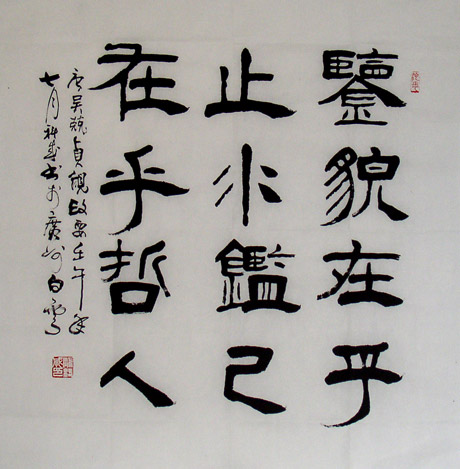 鑒貌在乎
止水鑑己
在乎哲人
唐吳兢貞觀政要壬午年
七月書於廣州白雲